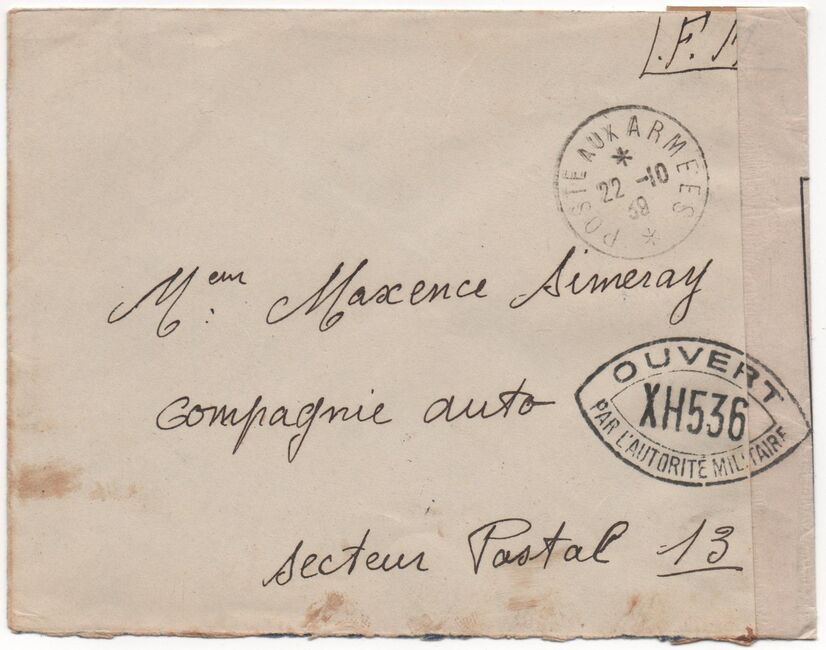 F.
POSTE AUX ARMÉES
22 -10
39
Meur Maxence Simeray
OUVERT
XH536
PAR L'AUTORITÉ MILITAIRE
compagnie auto
secteur Postal 13